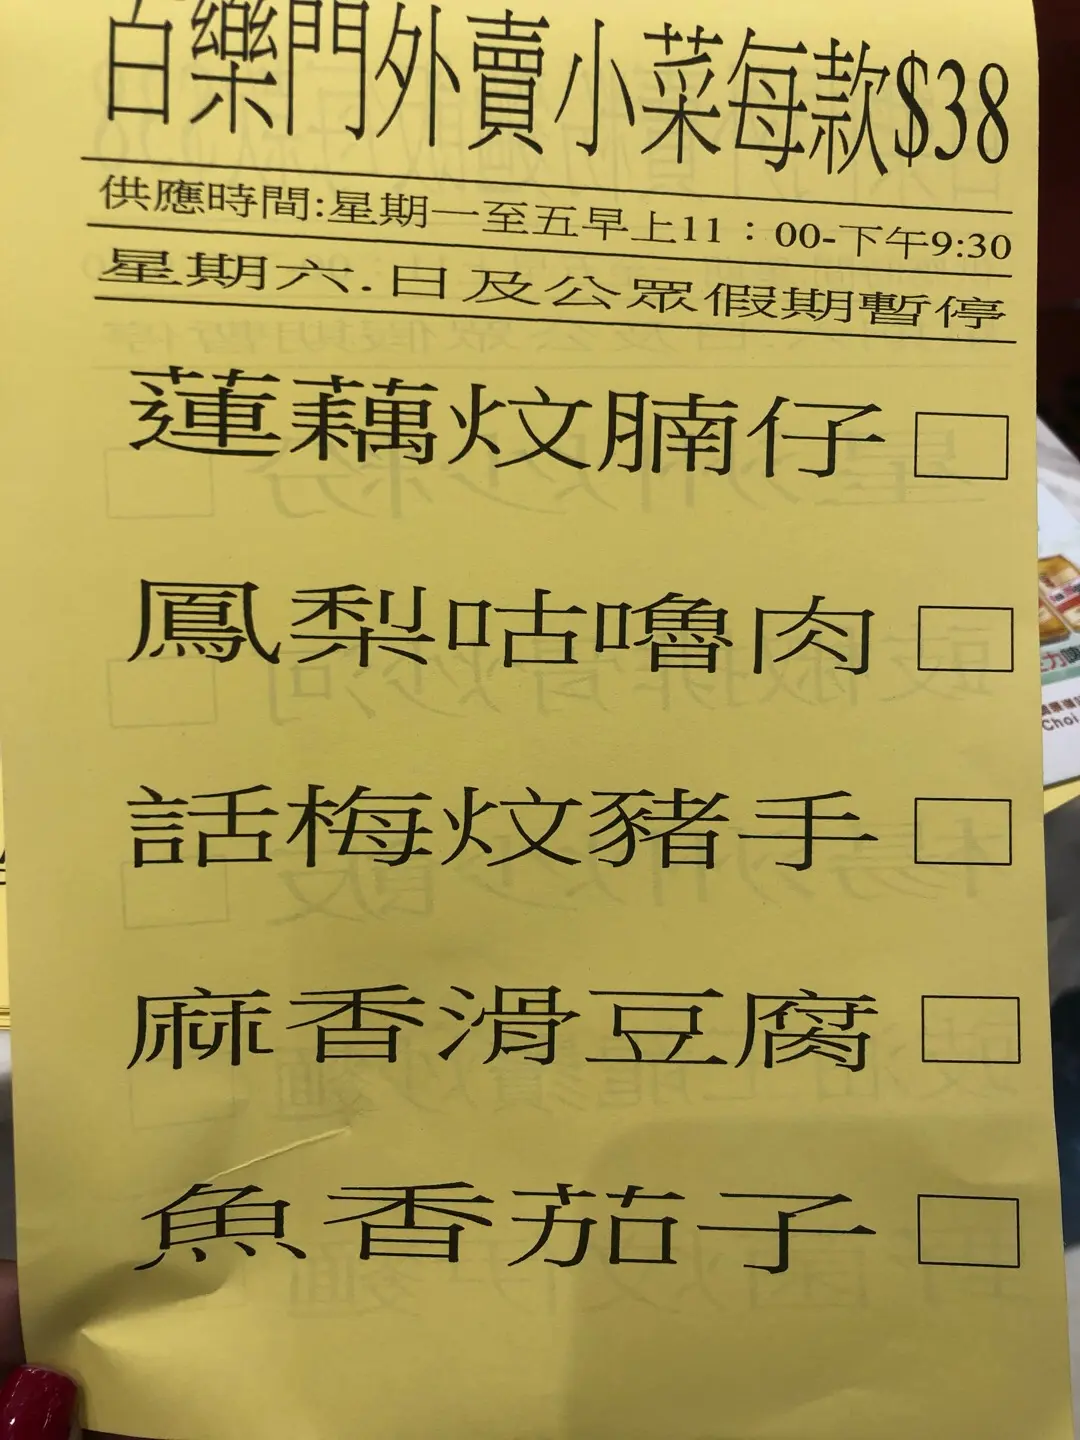 百樂門外賣小菜每款$38
供應時間:星期一至五早上11：00-下午9:30
星期六.日及公眾假期暫停
蓮藕炆腩仔
鳳梨咕嚕肉
話梅炆豬手
麻香滑豆腐
魚香茄子
Choi